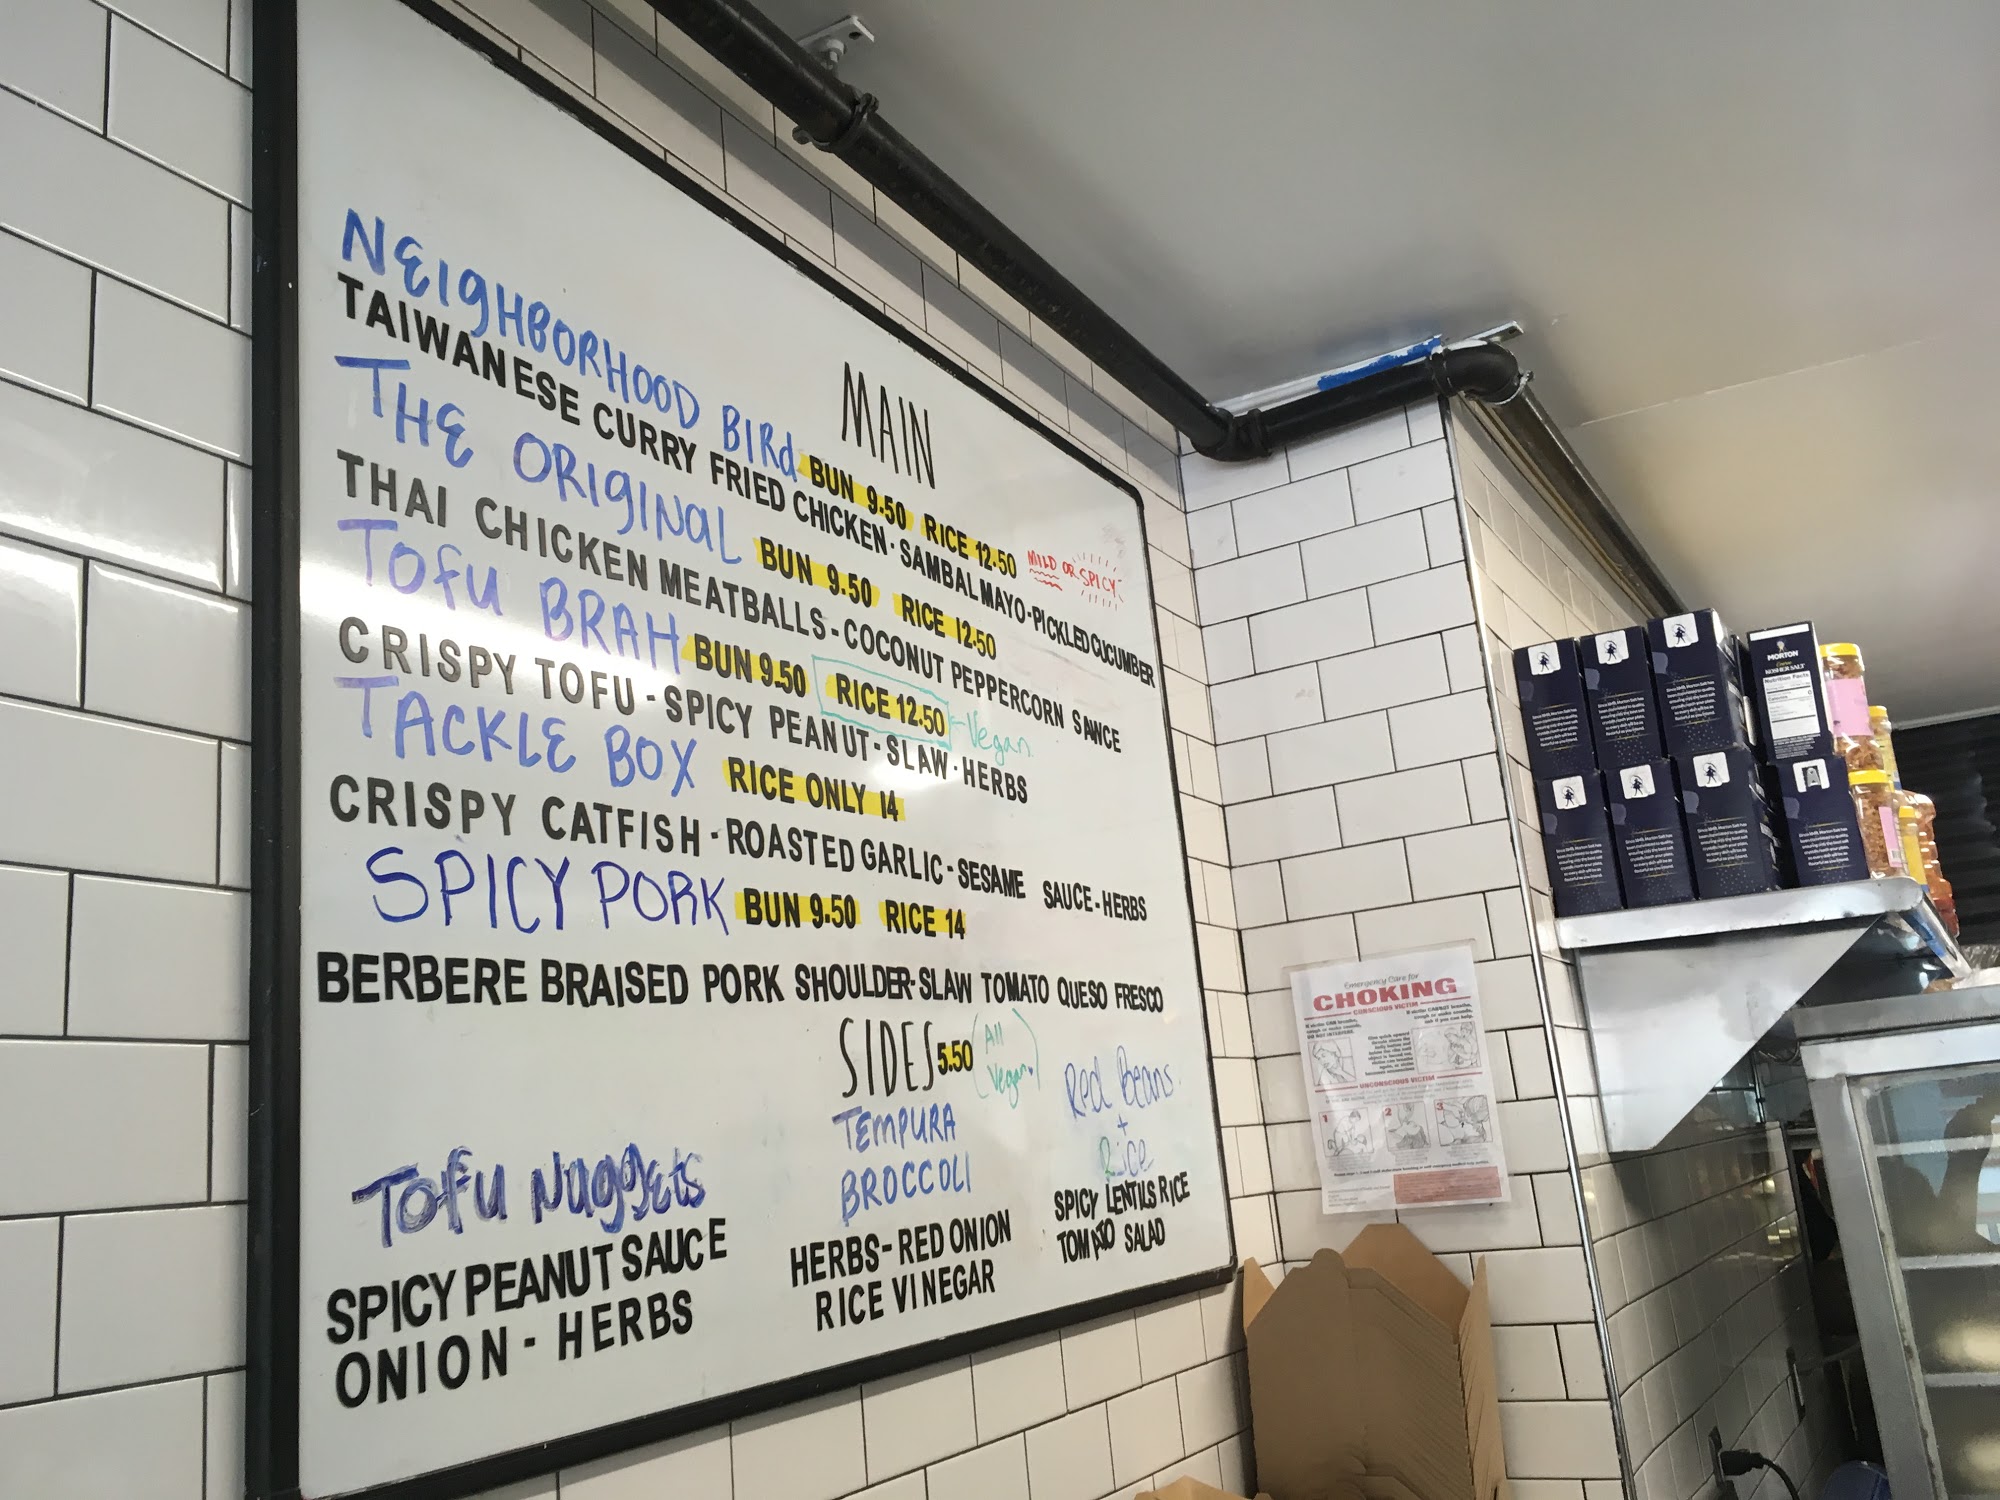 MAIN
NEIGHBORHOOD BIRd BUN 9.50 RICE 12.50 MILD OR SPICY
TAIWANESE CURRY FRIED CHICKEN · SAMBAL MAYO - PICKLED CUCUMBER
THE ORIGINAL BUN 9.50 RICE 12.50
THAI CHICKEN MEATBALLS - COCONUT PEPPERCORN SAWCE
TOFU BRAH BUN 9.50 RICE 12.50 - Vegan
CRISPY TOFU - SPICY PEANUT - SLAW · HERBS
TACKLE BOX RICE ONLY 14
CRISPY CATFISH - ROASTED GARLIC - SESAME SAUCE - HERBS
SPICY PORK BUN 9.50 RICE 14
BERBERE BRAISED PORK SHOULDER - SLAW TOMATO QUESO FRESCO
SIDES 5.50 (All Vegan.)
Tofu Nuggets
SPICY PEANUT SAUCE
ONION - HERBS
TEMPURA
BROCCOLI
HERBS - RED ONION
RICE VINEGAR
Red Beans
+
Rice
SPICY LENTILS RICE
TOMATO SALAD
MORTON
KOSHER SALT
Nutrition Facts
Emergency Care for
CHOKING
CONSCIOUS VICTIM
UNCONSCIOUS VICTIM
1 2 3